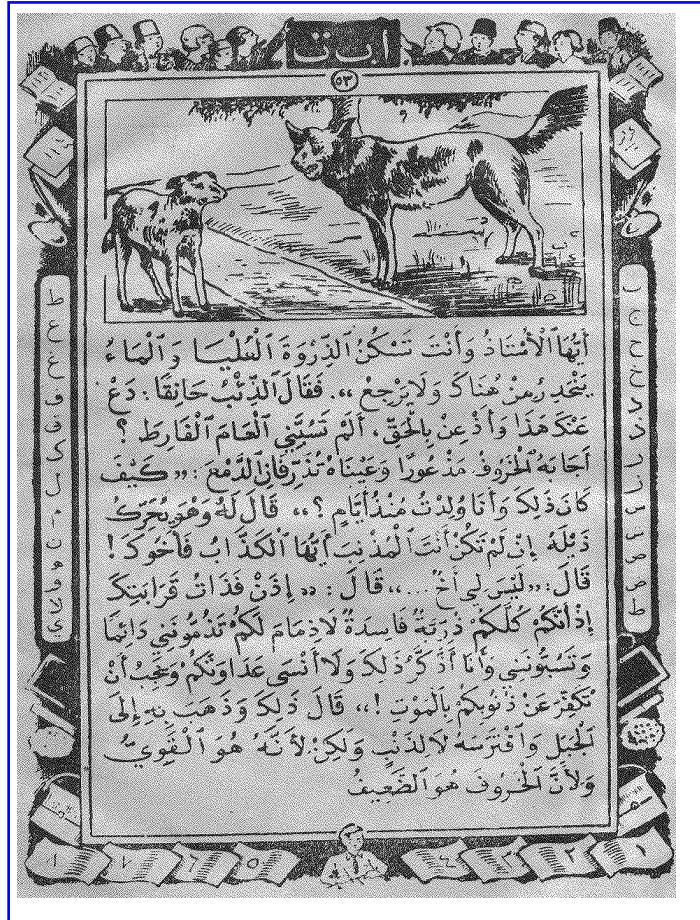 ا ب ت
٥٣
أَيُّهَا الْأُسْتَاذُ وَأَنْتَ تَسْكُنُ الذِّرْوَةَ الْعُلْيَا وَالْمَاءُ
يَنْحَدِرُ مِنْ هُنَاكَ وَلَا يَرْجِعُ». فَقَالَ الذِّئْبُ حَانِقًا: دَعْ
عَنْكَ هَذَا وَأَذْعِنْ بِالْحَقِّ، أَلَمْ تَسُبَّنِي الْعَامَ الْفَارِطَ؟
أَجَابَهُ الْخَرُوفُ مَذْعُورًا وَعَيْنَاهُ تَذْرِفَانِ الدَّمْعَ: «كَيْفَ
كَانَ ذَلِكَ وَأَنَا وُلِدْتُ مُنْذُ أَيَّامٍ؟» قَالَ لَهُ وَهُوَ يُحَرِّكُ
ذَيْلَهُ إِنْ لَمْ تَكُنْ أَنْتَ الْمُذْنِبَ أَيُّهَا الْكَذَّابُ فَأَخُوكَ!
قَالَ: «لَيْسَ لِي أَخٌ...» قَالَ: «إِذَنْ فَذَاتُ قَرَابَتِكَ
إِذْ أَنَّكُمْ كُلَّكُمْ ذُرِّيَّةٌ فَاسِدَةٌ لَا ذِمَامَ لَكُمْ تَذُمُّونَنِي دَائِمًا
وَتَسُبُّونَنِي وَأَنَا أَذَّكَّرُ ذَلِكَ وَلَا أَنْسَى عَدَاوَتَكُمْ وَيَجِبُ أَنْ
تُكَفِّرَ عَنْ ذُنُوبِكُمْ بِالْمَوْتِ!» قَالَ ذَلِكَ وَذَهَبَ بِهِ إِلَى
الْجَبَلِ وَافْتَرَسَهُ لَا لِذَنْبٍ وَلَكِنْ لِأَنَّهُ هُوَ الْقَوِيُّ
وَلِأَنَّ الْخَرُوفَ هُوَ الضَّعِيفُ
ج
ح
خ
د
ذ
ر
ز
س
ش
ص
ض
ط
ظ
ع
غ
ف
ق
ك
ل
م
ن
ه
و
لا
ي
١ ٢ ٣ ٤ ٥ ٦ ٧ ٨